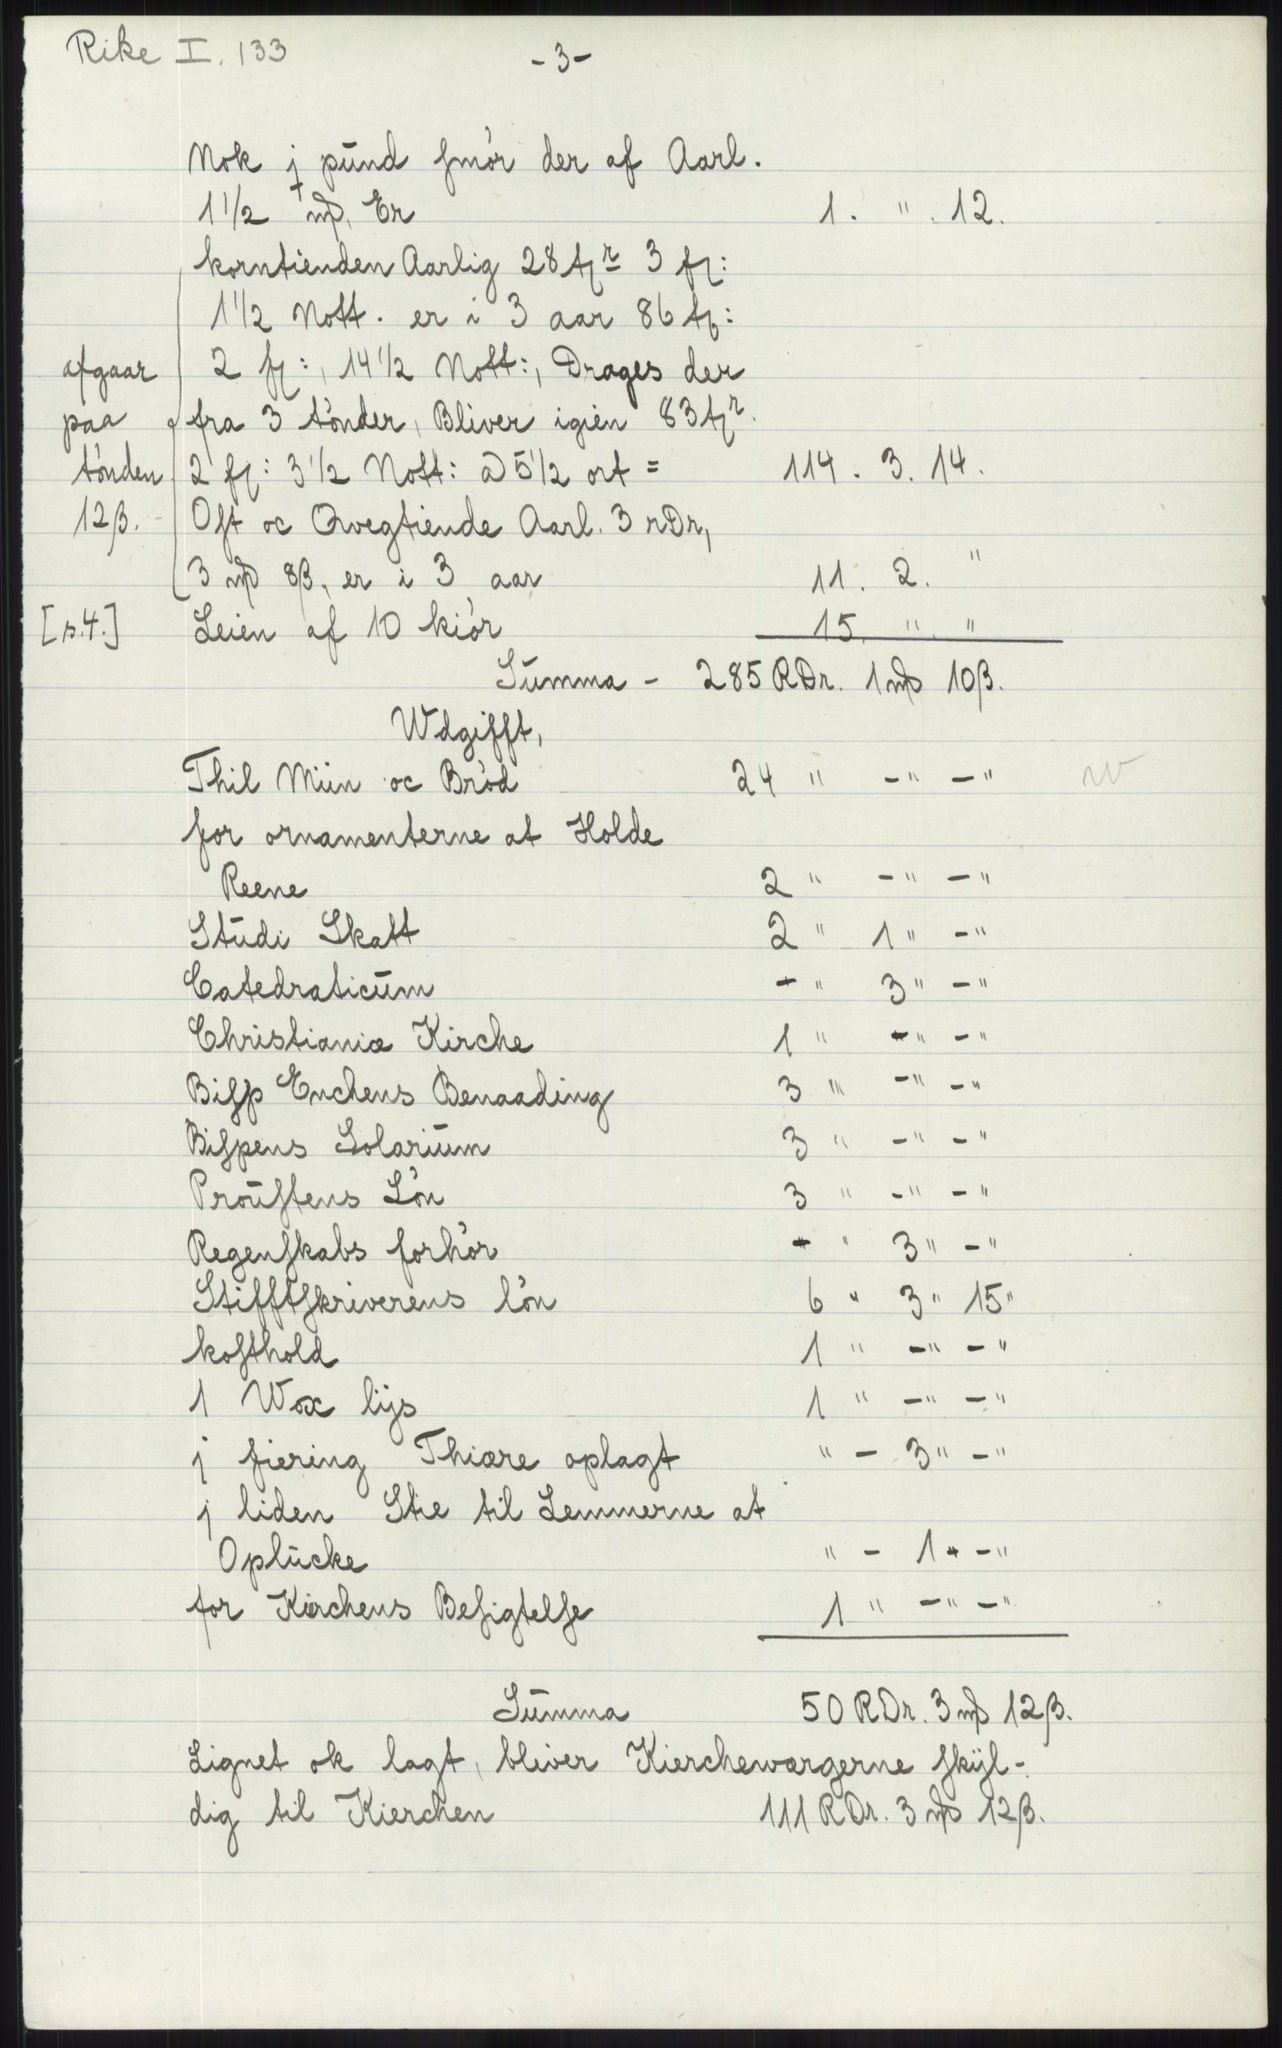 Rike I. 133
-3-
Nok j pund smór der af Aarl.
1 1/2 mꝭ, Er 1. " . 12.
korntienden Aarlig 28 tꝭr 3 fꝭ:
1 1/2 Nott. er i 3 aar 86 tꝭ:
afgaar 2 fꝭ:, 14 1/2 Nott:, Drages der
paa fra 3 tónder, Bliver igien 83 tꝭr.
tónden 2 fꝭ: 3 1/2 Nott: à 5 1/2 ort = 114. 3. 14.
12β. Ost oc Qvegtiende Aarl. 3 rDr,
3 mꝭ 8β, er i 3 aar 11. 2. "
[s.4.] Leien af 10 kiór 15. " "
Summa - 285 RDr. 1 mꝭ 10β.
Wdgifft,
Thil Wiin oc Bród 24 " -" -"
for ornamenterne at Holde
Reene 2 " -" -"
Studi Skatt 2 " 1" -"
Catedraticum - " 3" -"
Christianiæ Kirche 1 " -" -"
Bisp Enchens Benaading 3 " -" -"
Bispens Solarium 3 " -" -"
Proustens Lón 3 " -" -"
Regenskabs forhór - " 3" -"
Stifftskriverens lón 6 " 3" 15"
kosthold 1 " -" -"
1 Wox lijs 1 " -" -"
j fiering Thiære oplagt " - 3" -"
j liden Stie til Lemmerne at
Oplucke " - 1" -"
for Kirchens Besigtelse 1 " -" -"
Summa 50 RDr. 3 mꝭ 12β.
Lignet ok lagt, bliver Kierchewærgerne skÿl-
dig til Kierchen 111 RDr. 3 mꝭ 12β.